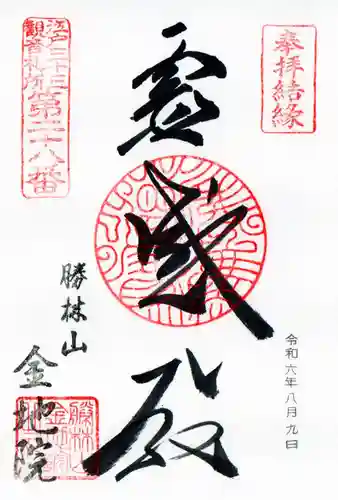 奉拝結縁
令和六年八月九日
霊感殿
江戸三十三
観音札所
第二十八番
勝林山
金地院